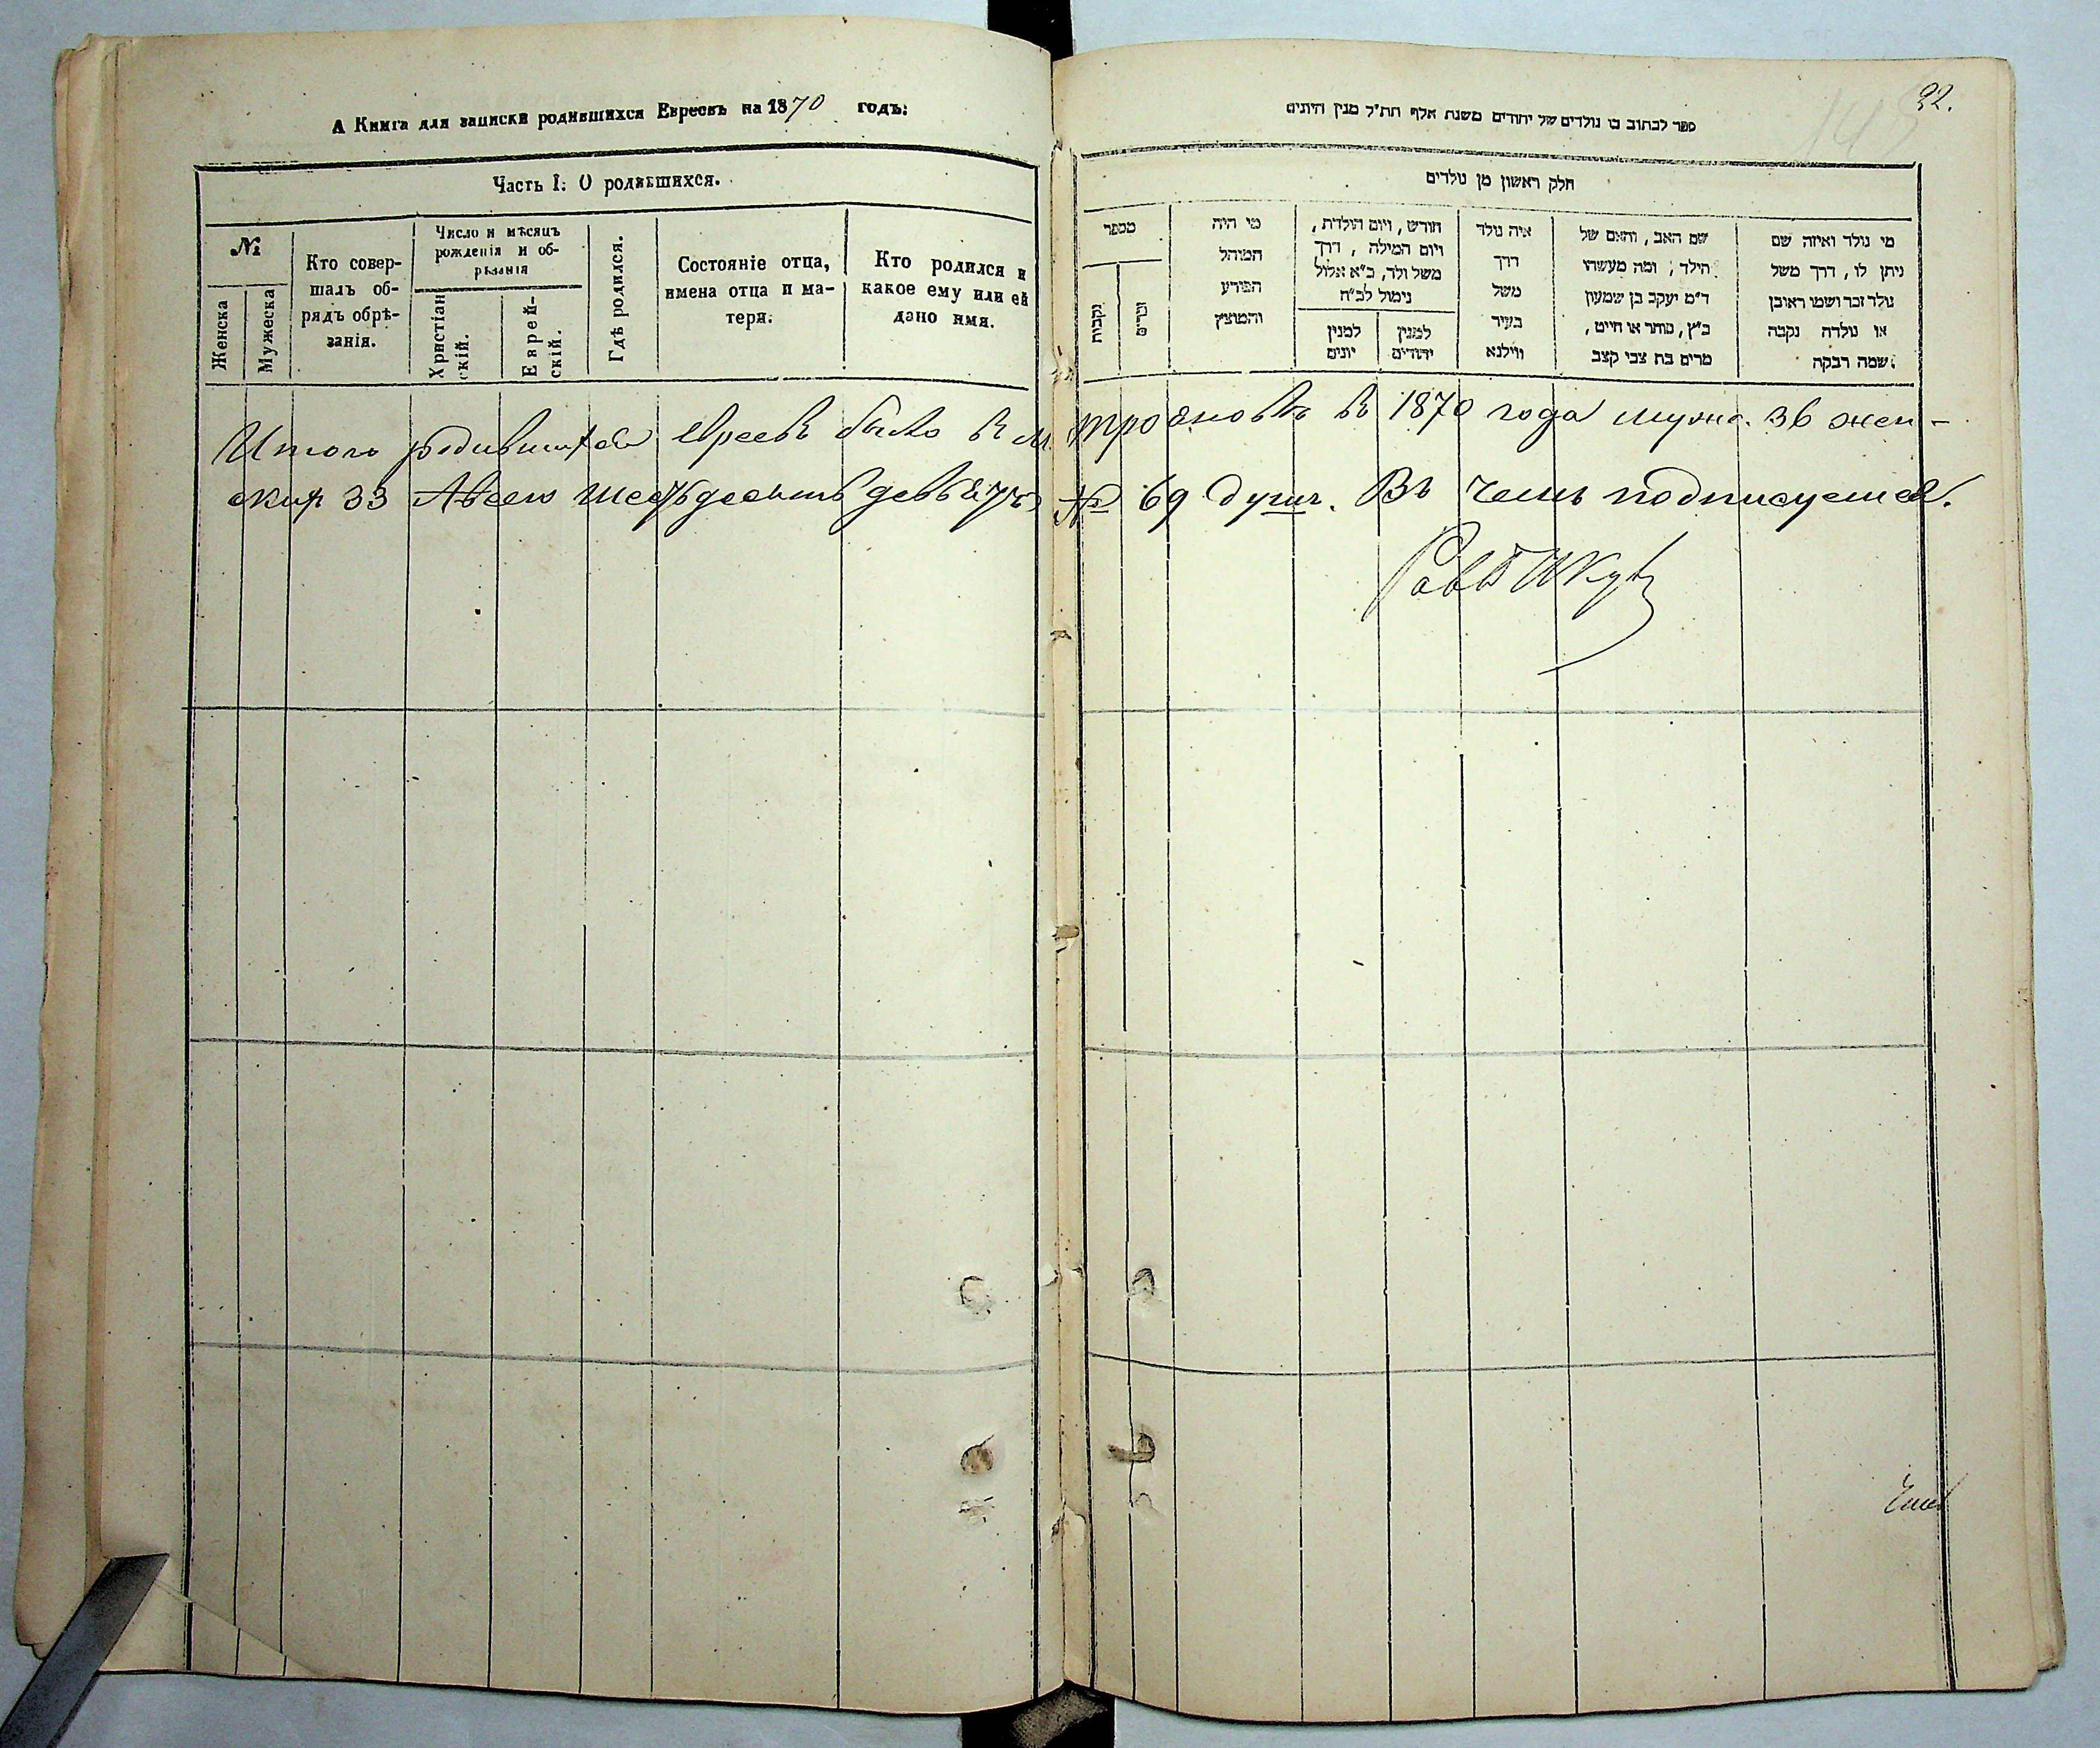 А Книга для записки родившихся Евреевъ на 1870 годъ:
Часть I: О родившихся.
№
Женска
Мужеска
Кто совер-
шалъ об-
рядъ обрѣ-
занія.
Число и мѣсяцъ
рожденія и об-
рѣзанія
Христіан
скій.
Еврей-
скій.
Гдѣ родился.
Состояніе отца,
имена отца и ма-
тери.
Кто родился и
какое ему или ей
дано имя.
22.
ספר לכתוב בו נולדים של יהודים משנת אלף תת״ל מנין היונים
חלק ראשון מן נולדים
מספר
נקבות
זכרים
מי היה
המוהל
הפורע
והמוצץ
חודש, ויום הולדת,
ויום המילה, דרך
משל ולד, כ״א אלול
נימול לכ״ח
למנין
יונים
למנין
יהודים
איה נולד
דרך
משל
בעיר
ווילנא
שם האב, והאם של
הילד, ומה מעשהו
ד״מ יעקב בן שמעון
כ״ץ, סוחר או חייט,
מרים בת צבי קצב
מי נולד ואיזה שם
ניתן לו, דרך משל
נולד זכר ושמו ראובן
או נולדה נקבה
שמה רבקה.
Итого родившихся евреевъ было въ м. Трояновѣ въ 1870 года мужс. 36 жен-
скихъ 33 А всего шестьдесятъ девять № 69 душъ. Въ чемъ подписуемся.